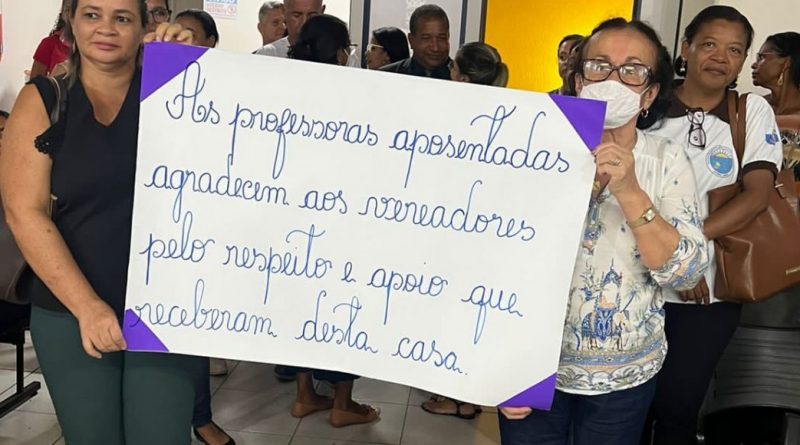 As professoras aposentadas
agradecem aos vereadores
pelo respeito e apoio que
receberam desta casa.